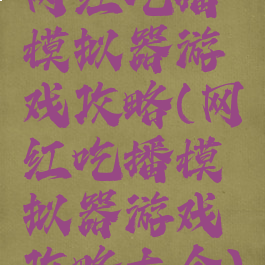 网红吃播
模拟器游
戏攻略(网
红吃播模
拟器游戏
攻略大全)